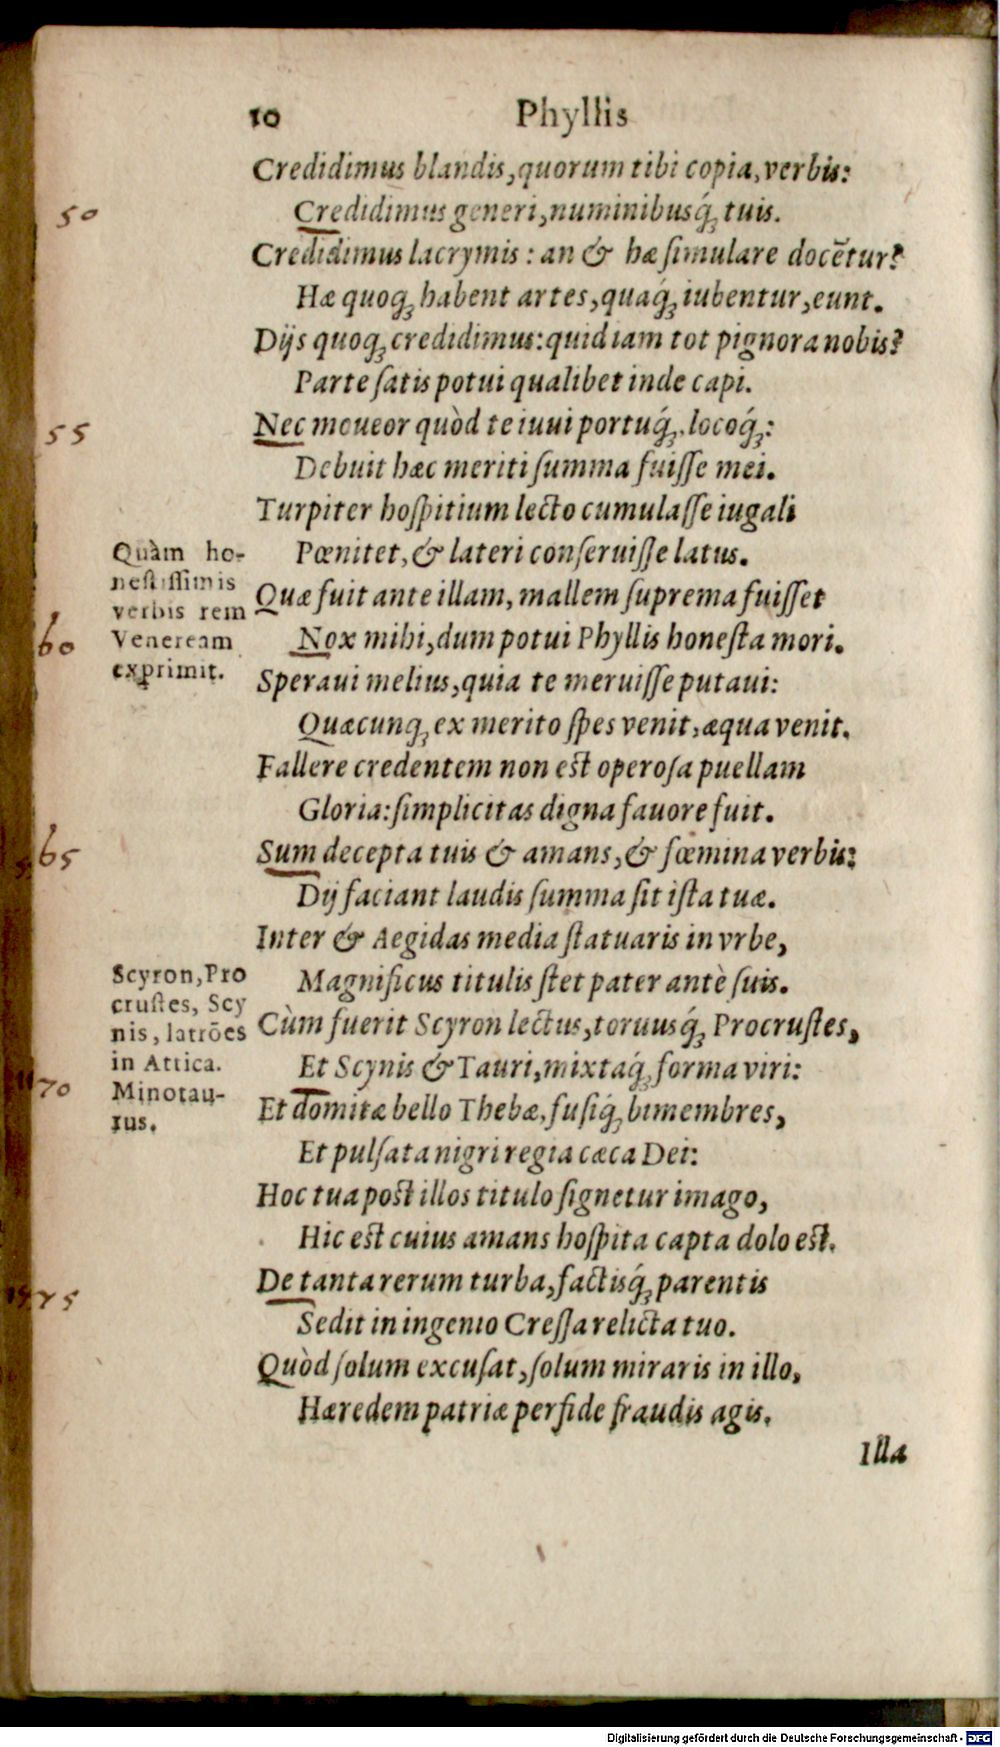 10 Phyllis
Credidimus blandis, quorum tibi copia, verbis:
50
Credidimus generi, numinibusq́; tuis.
Credidimus lacrymis : an & hæ ſimulare docẽtur?
Hæ quoq; habent artes, quaq́; iubentur, eunt.
Dijs quoq; credidimus: quid iam tot pignora nobis?
Parte ſatis potui qualibet inde capi.
55
Nec moueor quòd te iuui portuq́;, locoq́;:
Debuit hæc meriti ſumma fuiſſe mei.
Turpiter hoſpitium lecto cumulaſſe iugali
Pœnitet, & lateri conſeruiſſe latus.
Quàm ho-
neſtiſſimis
verbis rem
Veneream
exprimit.
Quæ fuit ante illam, mallem ſuprema fuiſſet
60
Nox mihi, dum potui Phyllis honeſta mori.
Speraui melius, quia te meruiſſe putaui:
Quæcunq; ex merito ſpes venit, æqua venit.
Fallere credentem non eſt operoſa puellam
Gloria: ſimplicitas digna fauore fuit.
65
Sum decepta tuis & amans, & fœmina verbis:
Dij faciant laudis ſumma ſit iſta tuæ.
Inter & Aegidas media ſtatuaris in vrbe,
Magnificus titulis ſtet pater antè ſuis.
Scyron, Pro
cruſtes, Scy
nis, latrões
in Attica.
Minotau-
rus.
Cùm fuerit Scyron lectus, toruusq́; Procruſtes,
70
Et Scynis & Tauri, mixtaq́; forma viri:
Et domitæ bello Thebæ, fuſiq́; bimembres,
Et pulſata nigri regia cæca Dei:
Hoc tua poſt illos titulo ſignetur imago,
Hic eſt cuius amans hoſpita capta dolo eſt.
75
De tanta rerum turba, factisq́; parentis
Sedit in ingenio Creſſa relicta tuo.
Quòd ſolum excuſat, ſolum miraris in illo,
Hæredem patriæ perfide fraudis agis.
Illa
Digitalisierung gefördert durch die Deutsche Forschungsgemeinschaft - DFG